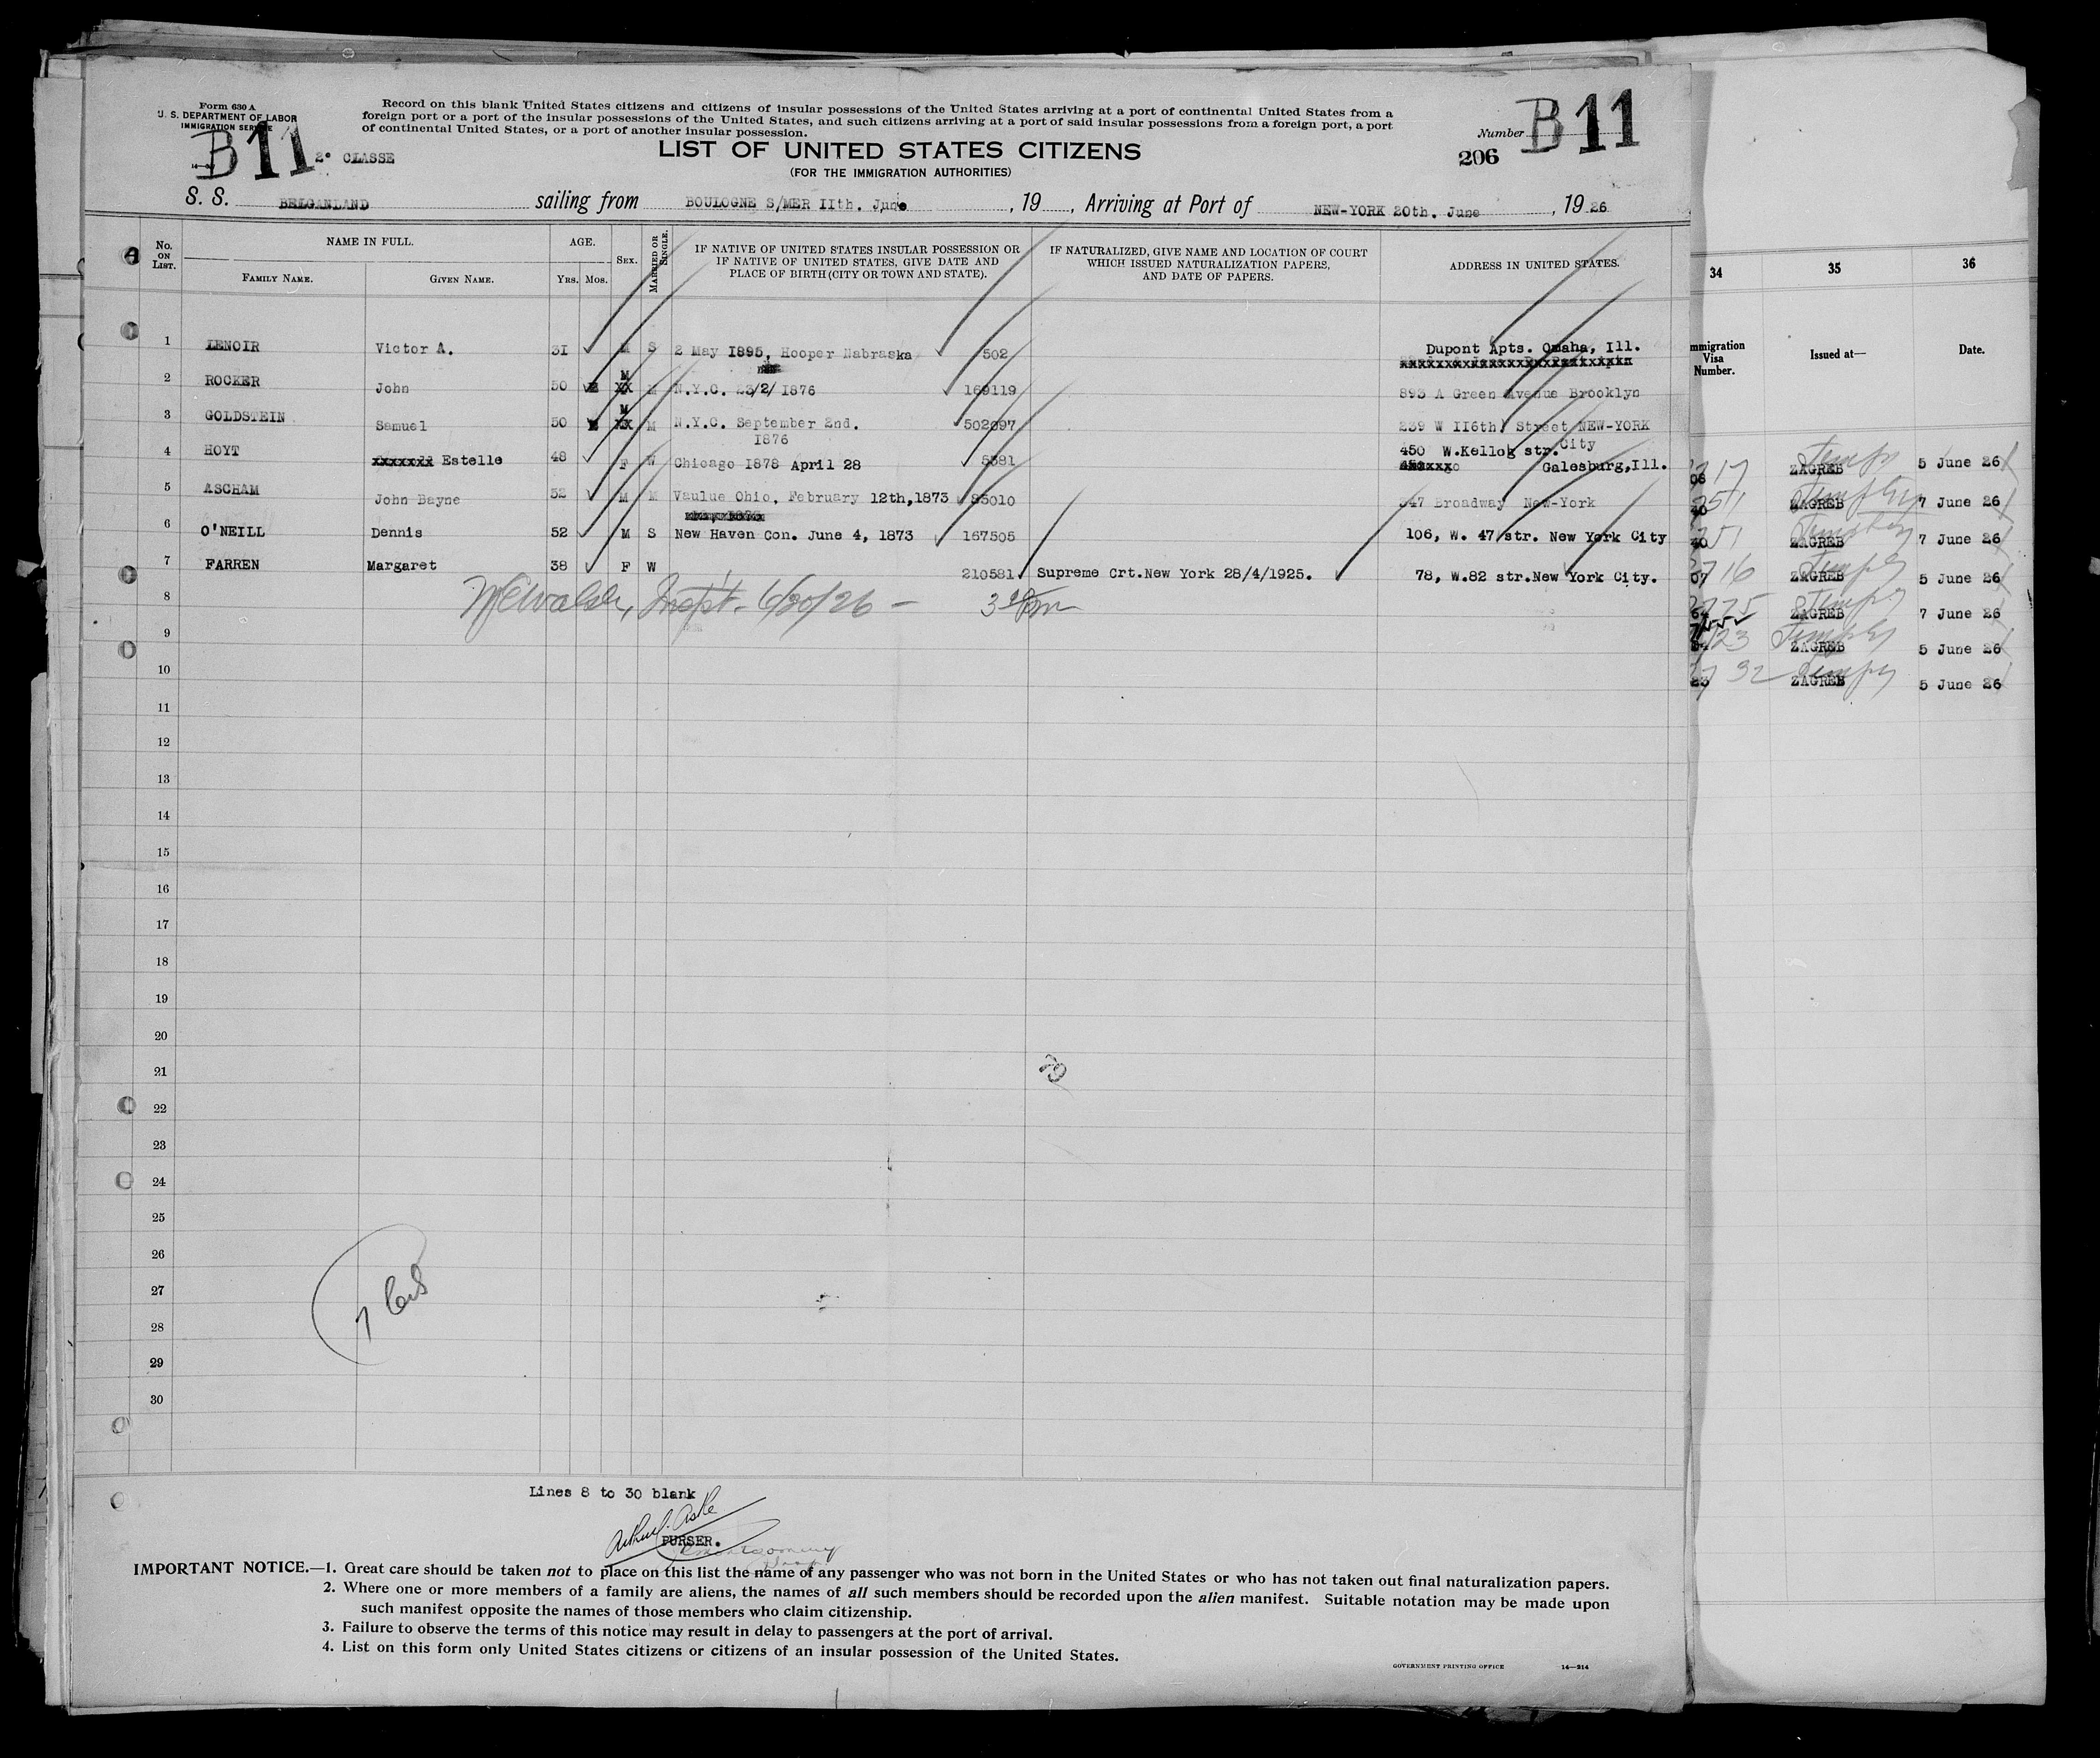 Form 630 A
U. S. DEPARTMENT OF LABOR
IMMIGRATION SERVICE
B 11
2° CLASSE
Record on this blank United States citizens and citizens of insular possessions of the United States arriving at a port of continental United States from a
foreign port or a port of the insular possessions of the United States, and such citizens arriving at a port of said insular possessions from a foreign port, a port
of continental United States, or a port of another insular possession.
LIST OF UNITED STATES CITIZENS
(FOR THE IMMIGRATION AUTHORITIES)
Number B 11
206
S. S. BELGANLAND sailing from BOULOGNE S/MER IIth. June, 19 , Arriving at Port of NEW-YORK 20th. June, 19 26
No. ON LIST.
NAME IN FULL.
FAMILY NAME.
GIVEN NAME.
AGE.
Yrs. Mos.
SEX.
MARRIED OR SINGLE.
IF NATIVE OF UNITED STATES INSULAR POSSESSION OR
IF NATIVE OF UNITED STATES, GIVE DATE AND
PLACE OF BIRTH (CITY OR TOWN AND STATE).
IF NATURALIZED, GIVE NAME AND LOCATION OF COURT
WHICH ISSUED NATURALIZATION PAPERS,
AND DATE OF PAPERS.
ADDRESS IN UNITED STATES.
34
35
36
Immigration
Visa
Number.
Issued at—
Date.
1 LENOIR Victor A. 31 M S 2 May 1895, Hooper Nabraska 502 Dupont Apts. Omaha, Ill.
2 ROCKER John 50 M XX M N.Y.C. 23/2/ 1876 169119 893 A Green Avenue Brooklyn
3 GOLDSTEIN Samuel 50 M XX M N.Y.C. September 2nd. 1876 502097 239 W II6th Street NEW-YORK City
4 HOYT xxxxxxx Estelle 48 F W Chicago 1878 April 28 5581 450 W.Kellog str. Galesburg,Ill.
5 ASCHAM John Bayne 52 M M Vaulue Ohio, February 12th,1873 95010 347 Broadway New-York
6 O'NEILL Dennis 52 M S New Haven Con. June 4, 1873 167505 106, W. 47 str. New York City
7 FARREN Margaret 38 F W 210581 Supreme Crt.New York 28/4/1925. 78, W.82 str.New York City.
Inspt. 6/20/26 –
8
9
10
11
12
13
14
15
16
17
18
19
20
21
22
23
24
25
26
27
28
29
30
ZAGREB 5 June 26
ZAGREB 7 June 26
ZAGREB 7 June 26
ZAGREB 5 June 26
ZAGREB 7 June 26
ZAGREB 5 June 26
ZAGREB 5 June 26
Lines 8 to 30 blank
PURSER.
IMPORTANT NOTICE.—1. Great care should be taken not to place on this list the name of any passenger who was not born in the United States or who has not taken out final naturalization papers.
2. Where one or more members of a family are aliens, the names of all such members should be recorded upon the alien manifest. Suitable notation may be made upon
such manifest opposite the names of those members who claim citizenship.
3. Failure to observe the terms of this notice may result in delay to passengers at the port of arrival.
4. List on this form only United States citizens or citizens of an insular possession of the United States.
GOVERNMENT PRINTING OFFICE 14—214